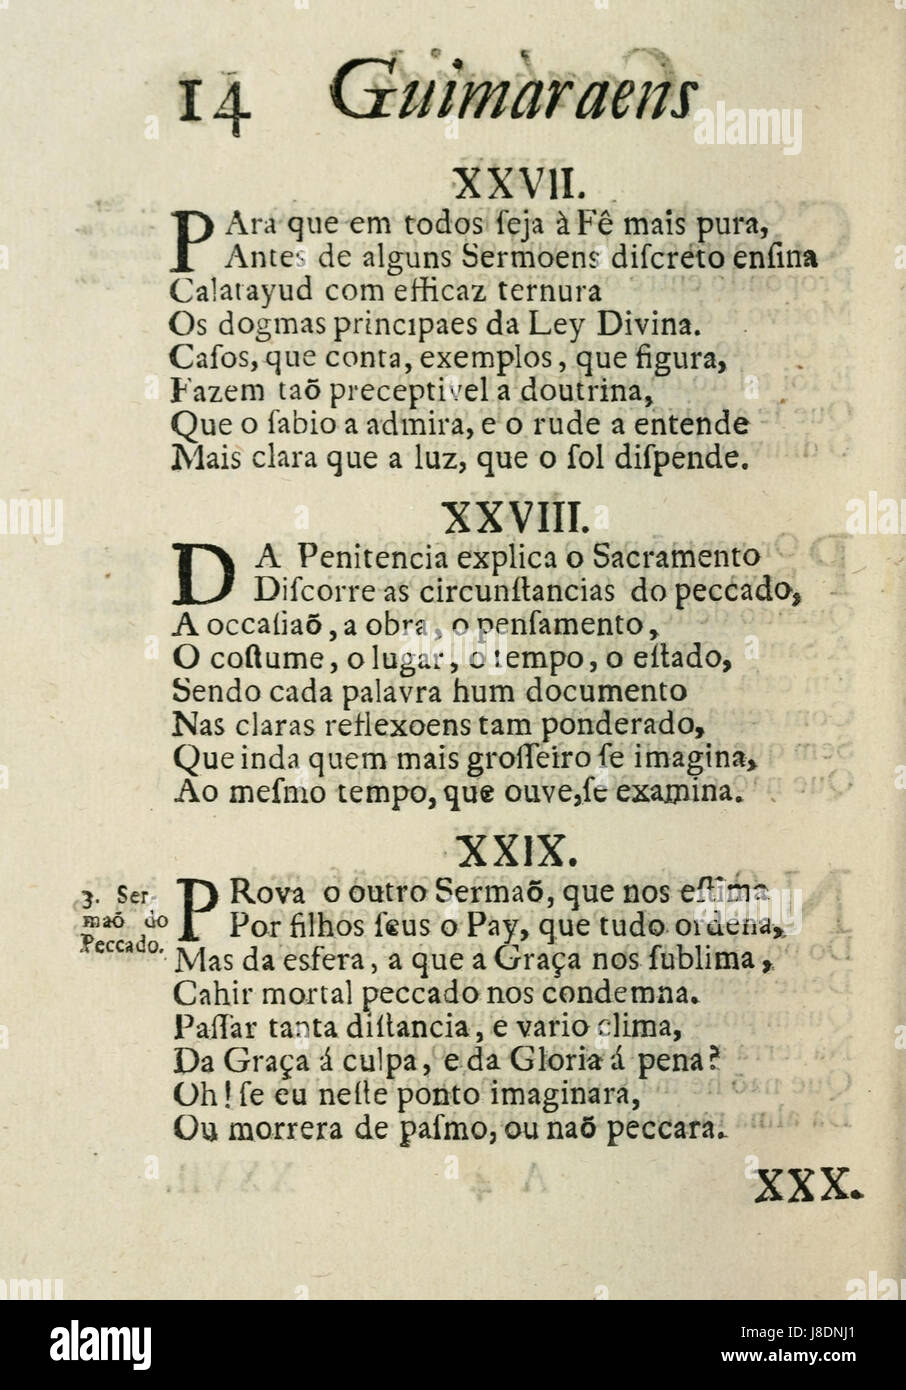 14 Guimaraens
XXVII.
PAra que em todos ſeja à Fê mais pura,
Antes de alguns Sermoens diſcreto enſina
Calatayud com efficaz ternura
Os dogmas principaes da Ley Divina.
Caſos, que conta, exemplos, que figura,
Fazem taõ preceptivel a doutrina,
Que o ſabio a admira, e o rude a entende
Mais clara que a luz, que o ſol diſpende.
XXVIII.
DA Penitencia explica o Sacramento
Diſcorre as circunſtancias do peccado,
A occaſiaõ, a obra, o penſamento,
O coſtume, o lugar, o tempo, o eſtado,
Sendo cada palavra hum documento
Nas claras reflexoens tam ponderado,
Que inda quem mais groſſeiro ſe imagina,
Ao meſmo tempo, que ouve, ſe examina.
XXIX.
3. Ser-
maõ do
Peccado.
PRova o outro Sermaõ, que nos eſtima
Por filhos ſeus o Pay, que tudo ordena,
Mas da esfera, a que a Graça nos ſublima,
Cahir mortal peccado nos condemna.
Paſſar tanta diſtancia, e vario clima,
Da Graça á culpa, e da Gloria á pena?
Oh! ſe eu neſte ponto imaginara,
Ou morrera de paſmo, ou naõ peccara.
XXX.
alamy
Image ID: J8DNJ1
www.alamy.com